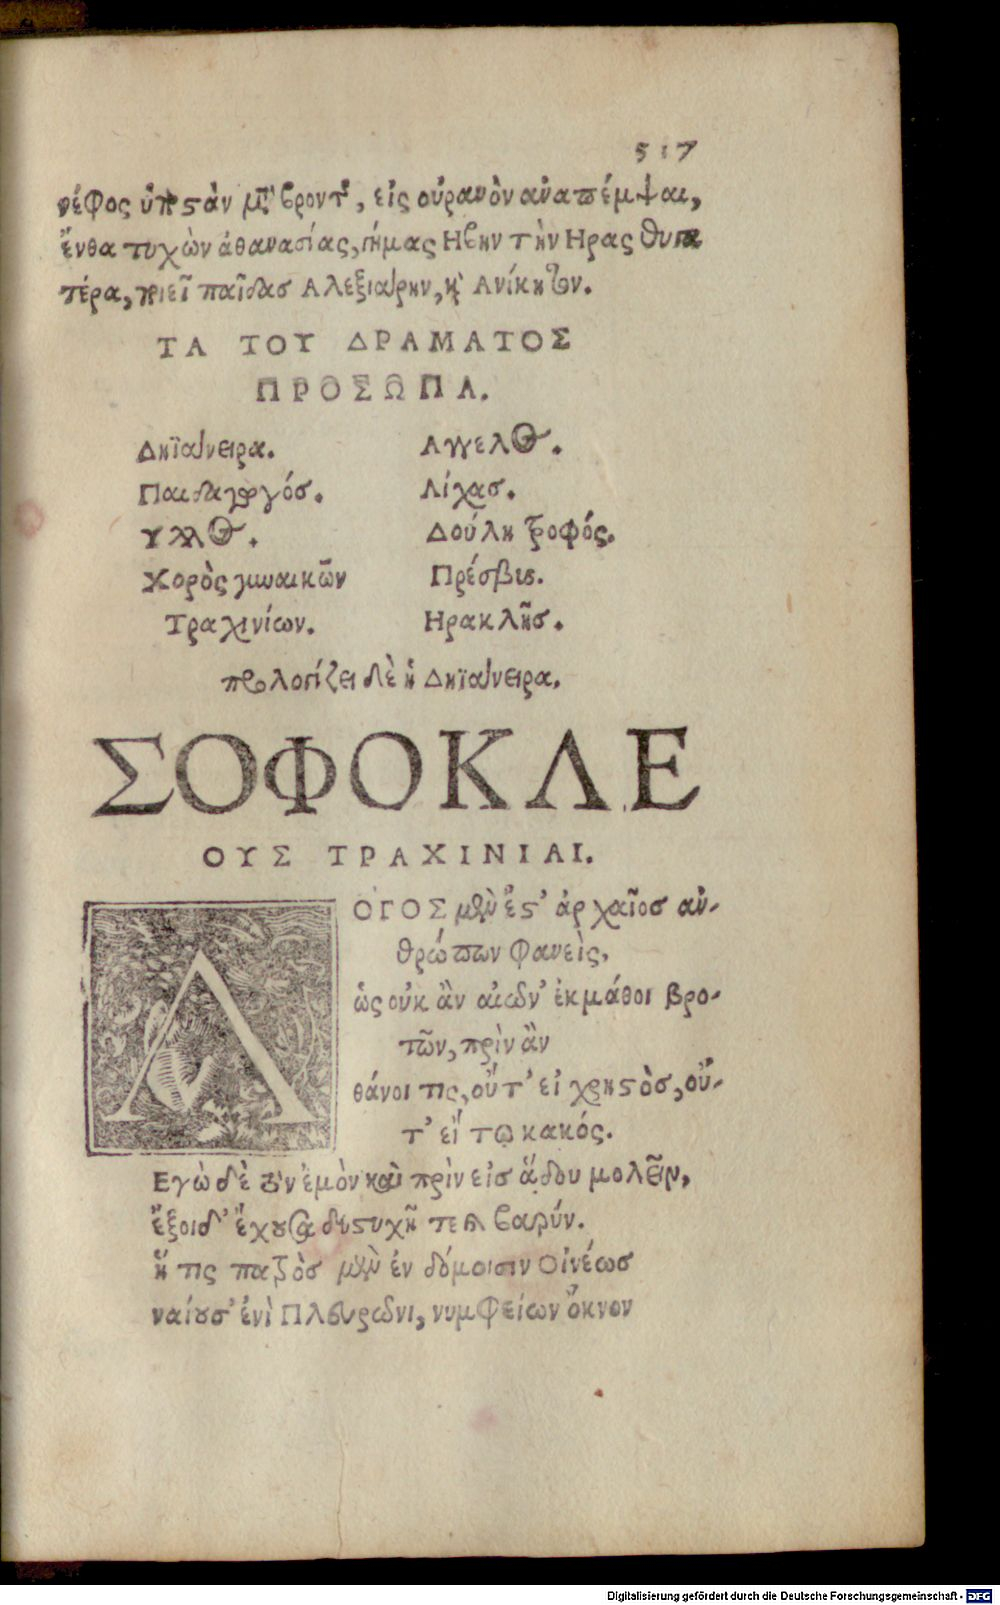 517
νέφος ὑποστὰν μετὰ βροντῆς, εἰς οὐρανὸν ἀναπέμψαι,
ἔνθα τυχὼν ἀθανασίας, γήμας Ηβην τὴν Ηρας θυγα
τέρα, ποιεῖ παῖδας Αλεξιάρην, καὶ Ανίκητον.
ΤΑ ΤΟΥ ΔΡΑΜΑΤΟΣ
ΠΡΟΣΩΠΑ.
Δηϊάνειρα. Αγγελος.
Παιδαγωγός. Λίχας.
Υλλος. Δούλη τροφός.
Χορὸς γυναικῶν Πρέσβις.
Τραχινίων. Ηρακλῆς.
προλογίζει δὲ ἡ Δηϊάνειρα.
ΣΟΦΟΚΛΕ
ΟΥΣ ΤΡΑΧΙΝΙΑΙ.
ΛΟΓΟΣ μὲν ἔστ' ἀρχαῖος ἀν-
θρώπων φανεὶς,
ὡς οὐκ ἂν αἰῶν' ἐκμάθοι βρο-
τῶν, πρὶν ἂν
θάνοι τις, οὔτ' εἰ χρηστὸς, οὔ-
τ' εἴ τῳ κακός.
Εγὼ δὲ τὸν ἐμὸν καὶ πρὶν εἰς ᾅδου μολεῖν,
ἔξοιδ' ἔχουσα δυστυχῆ τε καὶ βαρύν.
ἥ τις πατρὸς μὲν ἐν δόμοισιν Οἰνέως
ναίουσ' ἐνὶ Πλευρῶνι, νυμφείων ὄκνον
Digitalisierung gefördert durch die Deutsche Forschungsgemeinschaft - DFG